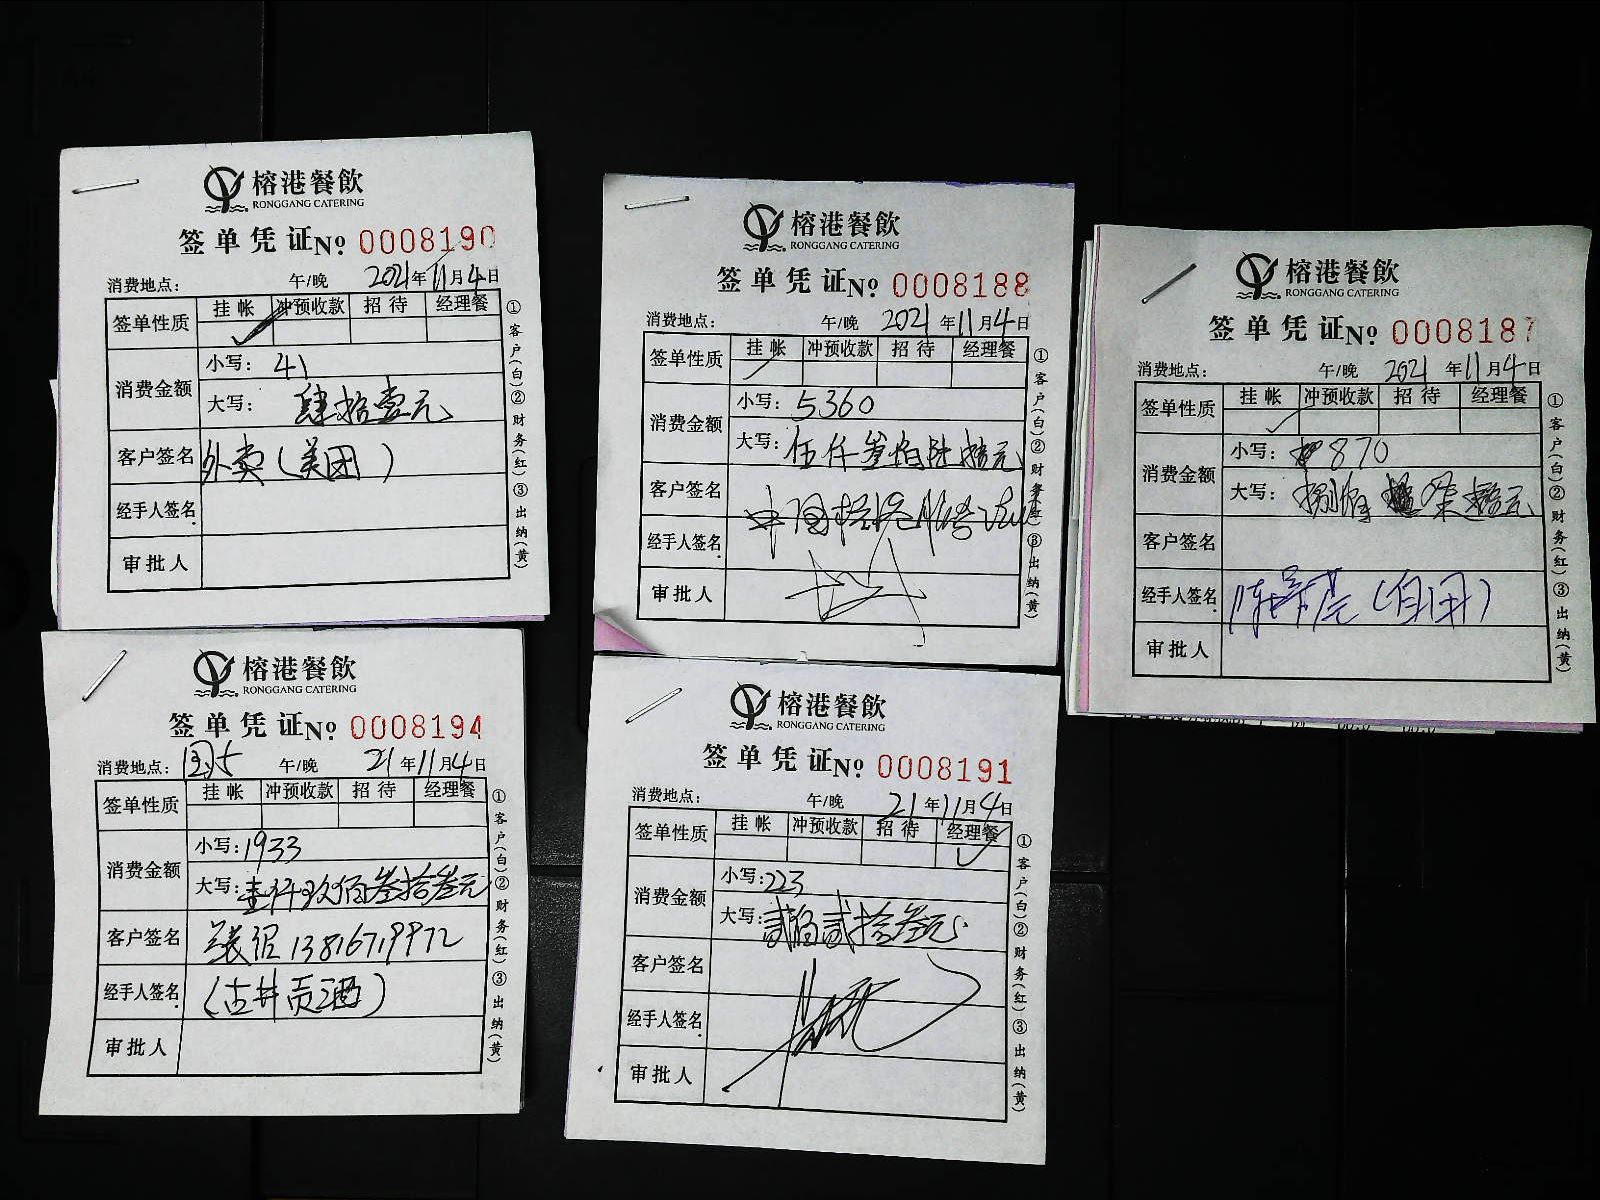 榕港餐飲
RONGGANG CATERING
签单凭证No. 0008190
消费地点: 午/晚 2021年11月4日
签单性质 挂帐 冲预收款 招待 经理餐
消费金额 小写: 41
大写: 肆拾壹元
客户签名 外卖(美团)
经手人签名
审批人
①客户(白)②财务(红)③出纳(黄)
榕港餐飲
RONGGANG CATERING
签单凭证No. 0008188
消费地点: 午/晚 2021年11月4日
签单性质 挂帐 冲预收款 招待 经理餐
消费金额 小写: 5360
大写: 伍仟叁佰陆拾元
客户签名
经手人签名
审批人
①客户(白)②财务(红)③出纳(黄)
榕港餐飲
RONGGANG CATERING
签单凭证No. 0008187
消费地点: 午/晚 2021年11月4日
签单性质 挂帐 冲预收款 招待 经理餐
消费金额 小写: 870
大写: 捌佰柒拾元
客户签名
经手人签名 (自用)
审批人
①客户(白)②财务(红)③出纳(黄)
榕港餐飲
RONGGANG CATERING
签单凭证No. 0008194
消费地点: 午/晚 21年11月4日
签单性质 挂帐 冲预收款 招待 经理餐
消费金额 小写: 1933
大写: 壹仟玖佰叁拾叁元
客户签名 13816719972
经手人签名 (古井贡酒)
审批人
①客户(白)②财务(红)③出纳(黄)
榕港餐飲
RONGGANG CATERING
签单凭证No. 0008191
消费地点: 午/晚 21年11月4日
签单性质 挂帐 冲预收款 招待 经理餐
消费金额 小写: 223
大写: 贰佰贰拾叁元
客户签名
经手人签名
审批人
①客户(白)②财务(红)③出纳(黄)